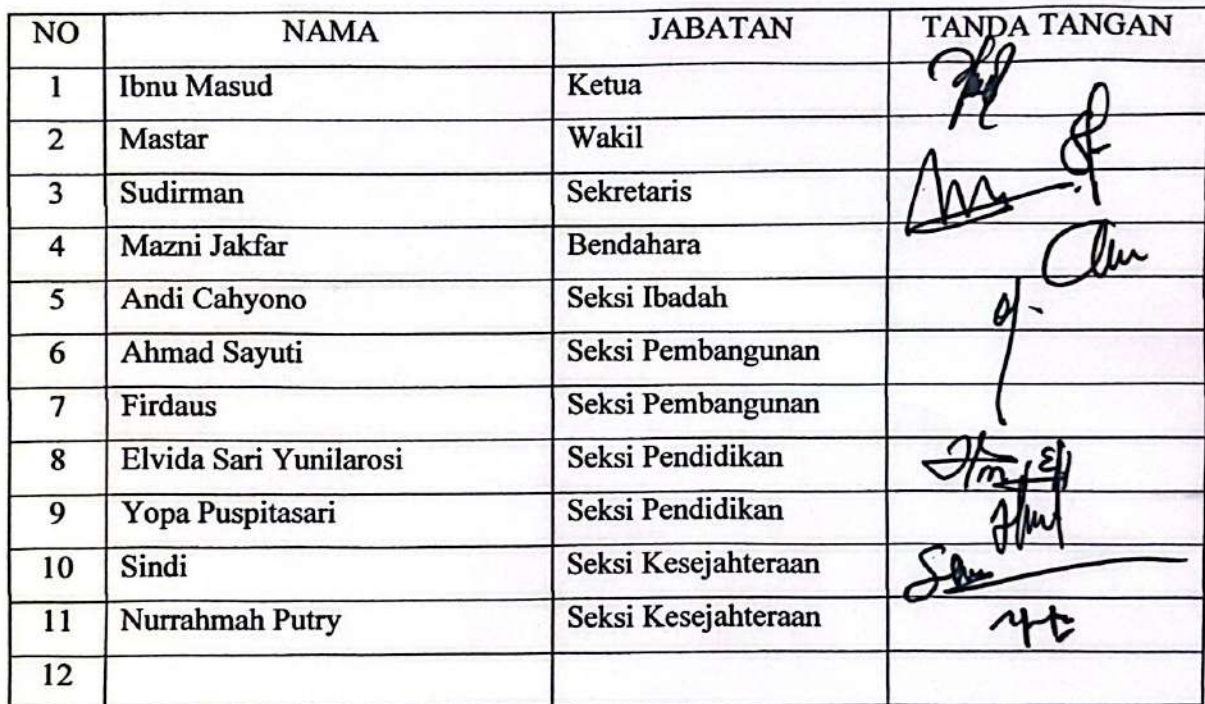 NO NAMA JABATAN TANDA TANGAN
1 Ibnu Masud Ketua
2 Mastar Wakil
3 Sudirman Sekretaris
4 Mazni Jakfar Bendahara
5 Andi Cahyono Seksi Ibadah
6 Ahmad Sayuti Seksi Pembangunan
7 Firdaus Seksi Pembangunan
8 Elvida Sari Yunilarosi Seksi Pendidikan
9 Yopa Puspitasari Seksi Pendidikan
10 Sindi Seksi Kesejahteraan
11 Nurrahmah Putry Seksi Kesejahteraan
12